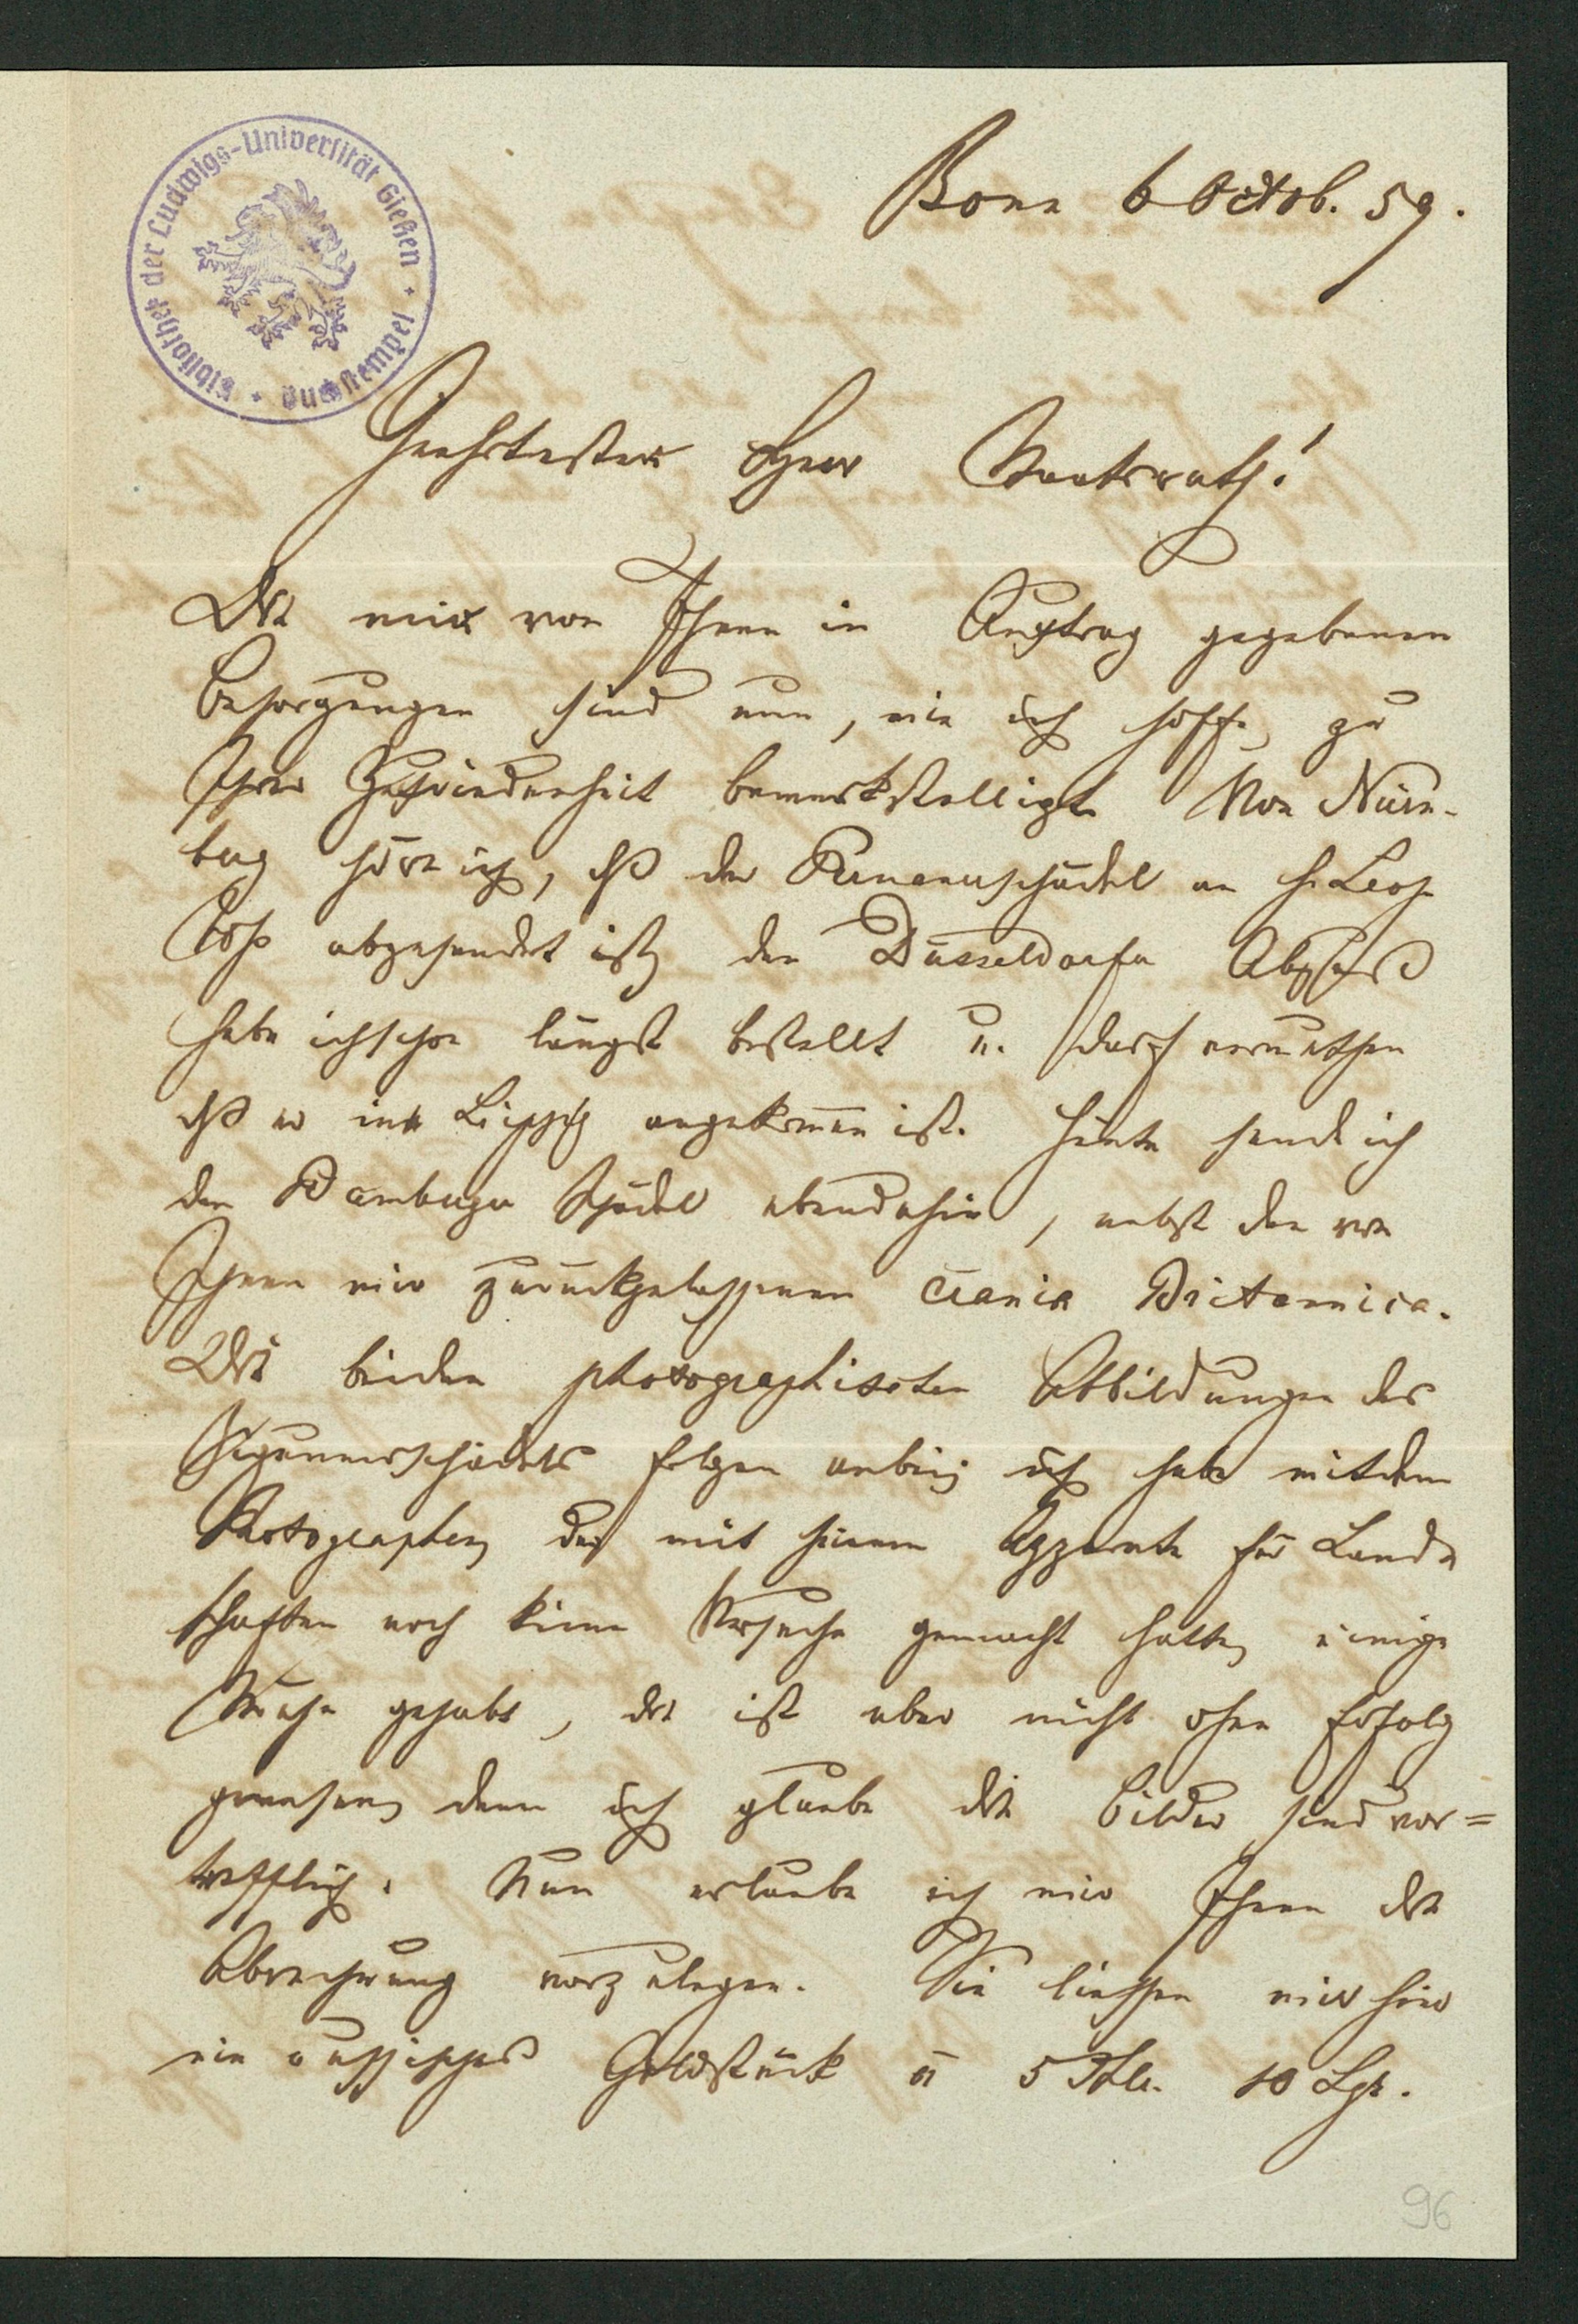 Bibliothek der Ludwigs-Universität Gießen · Buchstempel ·
Bonn 6 Octob. 59.
Geehrtester Herr Staatsrath!
Die mir von Ihnen in Auftrag gegebenen
Besorgungen sind nun, wie ich hoffe, zu
Ihrer Zufriedenheit bewerkstelligt. Von Nürn-
berg höre ich, dß der Peruanerschädel an H. Leop.
Voß abgesendet ist, den Düsseldorfer Abguß
habe ich schon längst bestellt u. darf vermuthen
dß er in Leipzig angekommen ist. Heute sende ich
den Bamberger Schädel ebendahin, nebst den von
Ihnen mir zurückgelassenen Crania Britannica.
Die beiden photographischen Abbildungen des
Zigeunerschädels folgen anbei; ich habe mit dem
Photographen, der mit seinem Apparate für Land-
schaften noch keine Versuche gemacht hatte, einige
Mühe gehabt, die ist aber nicht ohne Erfolg
gewesen, denn ich glaube die Bilder sind vor=
trefflich. Nun erlaube ich mir Ihnen die
Abrechnung vorzulegen. Sie liessen mir hier
ein russisches Goldstück à 5 Thlr. 10 Sgr.
96